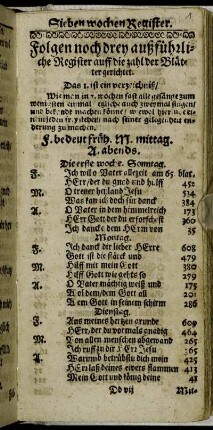 Sieben wochen Register.
Folgen noch drey außführli-
che Register auff die zahl der Blät-
ter gerichtet.
Das 1. ist ein verzeichniß /
Wie man in wochen fast alle gesänge zum
wenigsten einmal auch zweymal singen /
und bekandt machen könne /
nach seiner gelegenheit en-
derung zu machen.
F. bedeut früh. M. mittag.
A. abends.
Die erste woche. Sonntag.
F. Ich wil o Vater allezeit am 65. blat.
HErr der du gnad und hülff 452
M. O trener heyland Jesu 514
Was kan ich doch für danck 384
A. O Vater in dem himmelreich 173
HErr Gott der du erforschest 360
Ich dancke dem HErrn von 35
Montag.
F. Ich danck dir lieber HErre 608
Gott ist die stärck und 479
M. Hilff mit mein Gott 380
Hilff Gott wie gehts so 279
A. O Vater mächtig weiß und 175
Wol dem / dem Gott all 201
Wem Gott in seinem schirm 286
Dienstag.
F. Aus meines hertzen grunde 609
HErr, der du vormals gnädig 464
M. Von allen menschen abgewand 265
Ich ruff zu dir HErr Jesu 365
A. Warumb betrübstu dich mein 425
HErr laß deines eivers flammen 413
Mein Gott und könig deine 41
Do vij Mit-